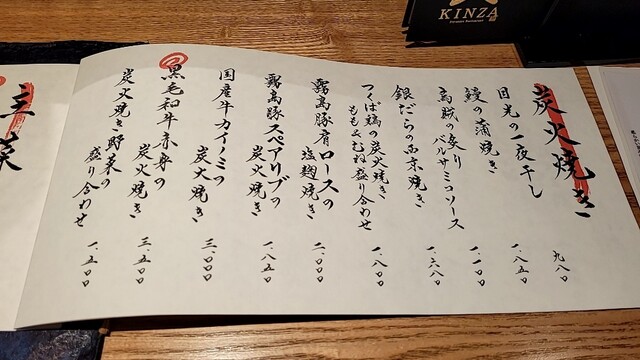 KINZA
炭火焼き
目光の一夜干し 九八〇
鰻の蒲焼き 一、八五〇
烏賊の炙り
バルサミコソース 一、一〇〇
銀だらの西京焼き 一、六八〇
つくば鶏の炭火焼き
ももとむね盛り合わせ 一、八〇〇
霧島豚肩ロースの
塩麹焼き 二、〇〇〇
霧島豚スペアリブの
炭火焼き 一、八五〇
国産牛カイノミの
炭火焼き 三、〇〇〇
黒毛和牛赤身の
炭火焼き 三、五〇〇
炭火焼き野菜の
盛り合わせ 一、五〇〇
主菜